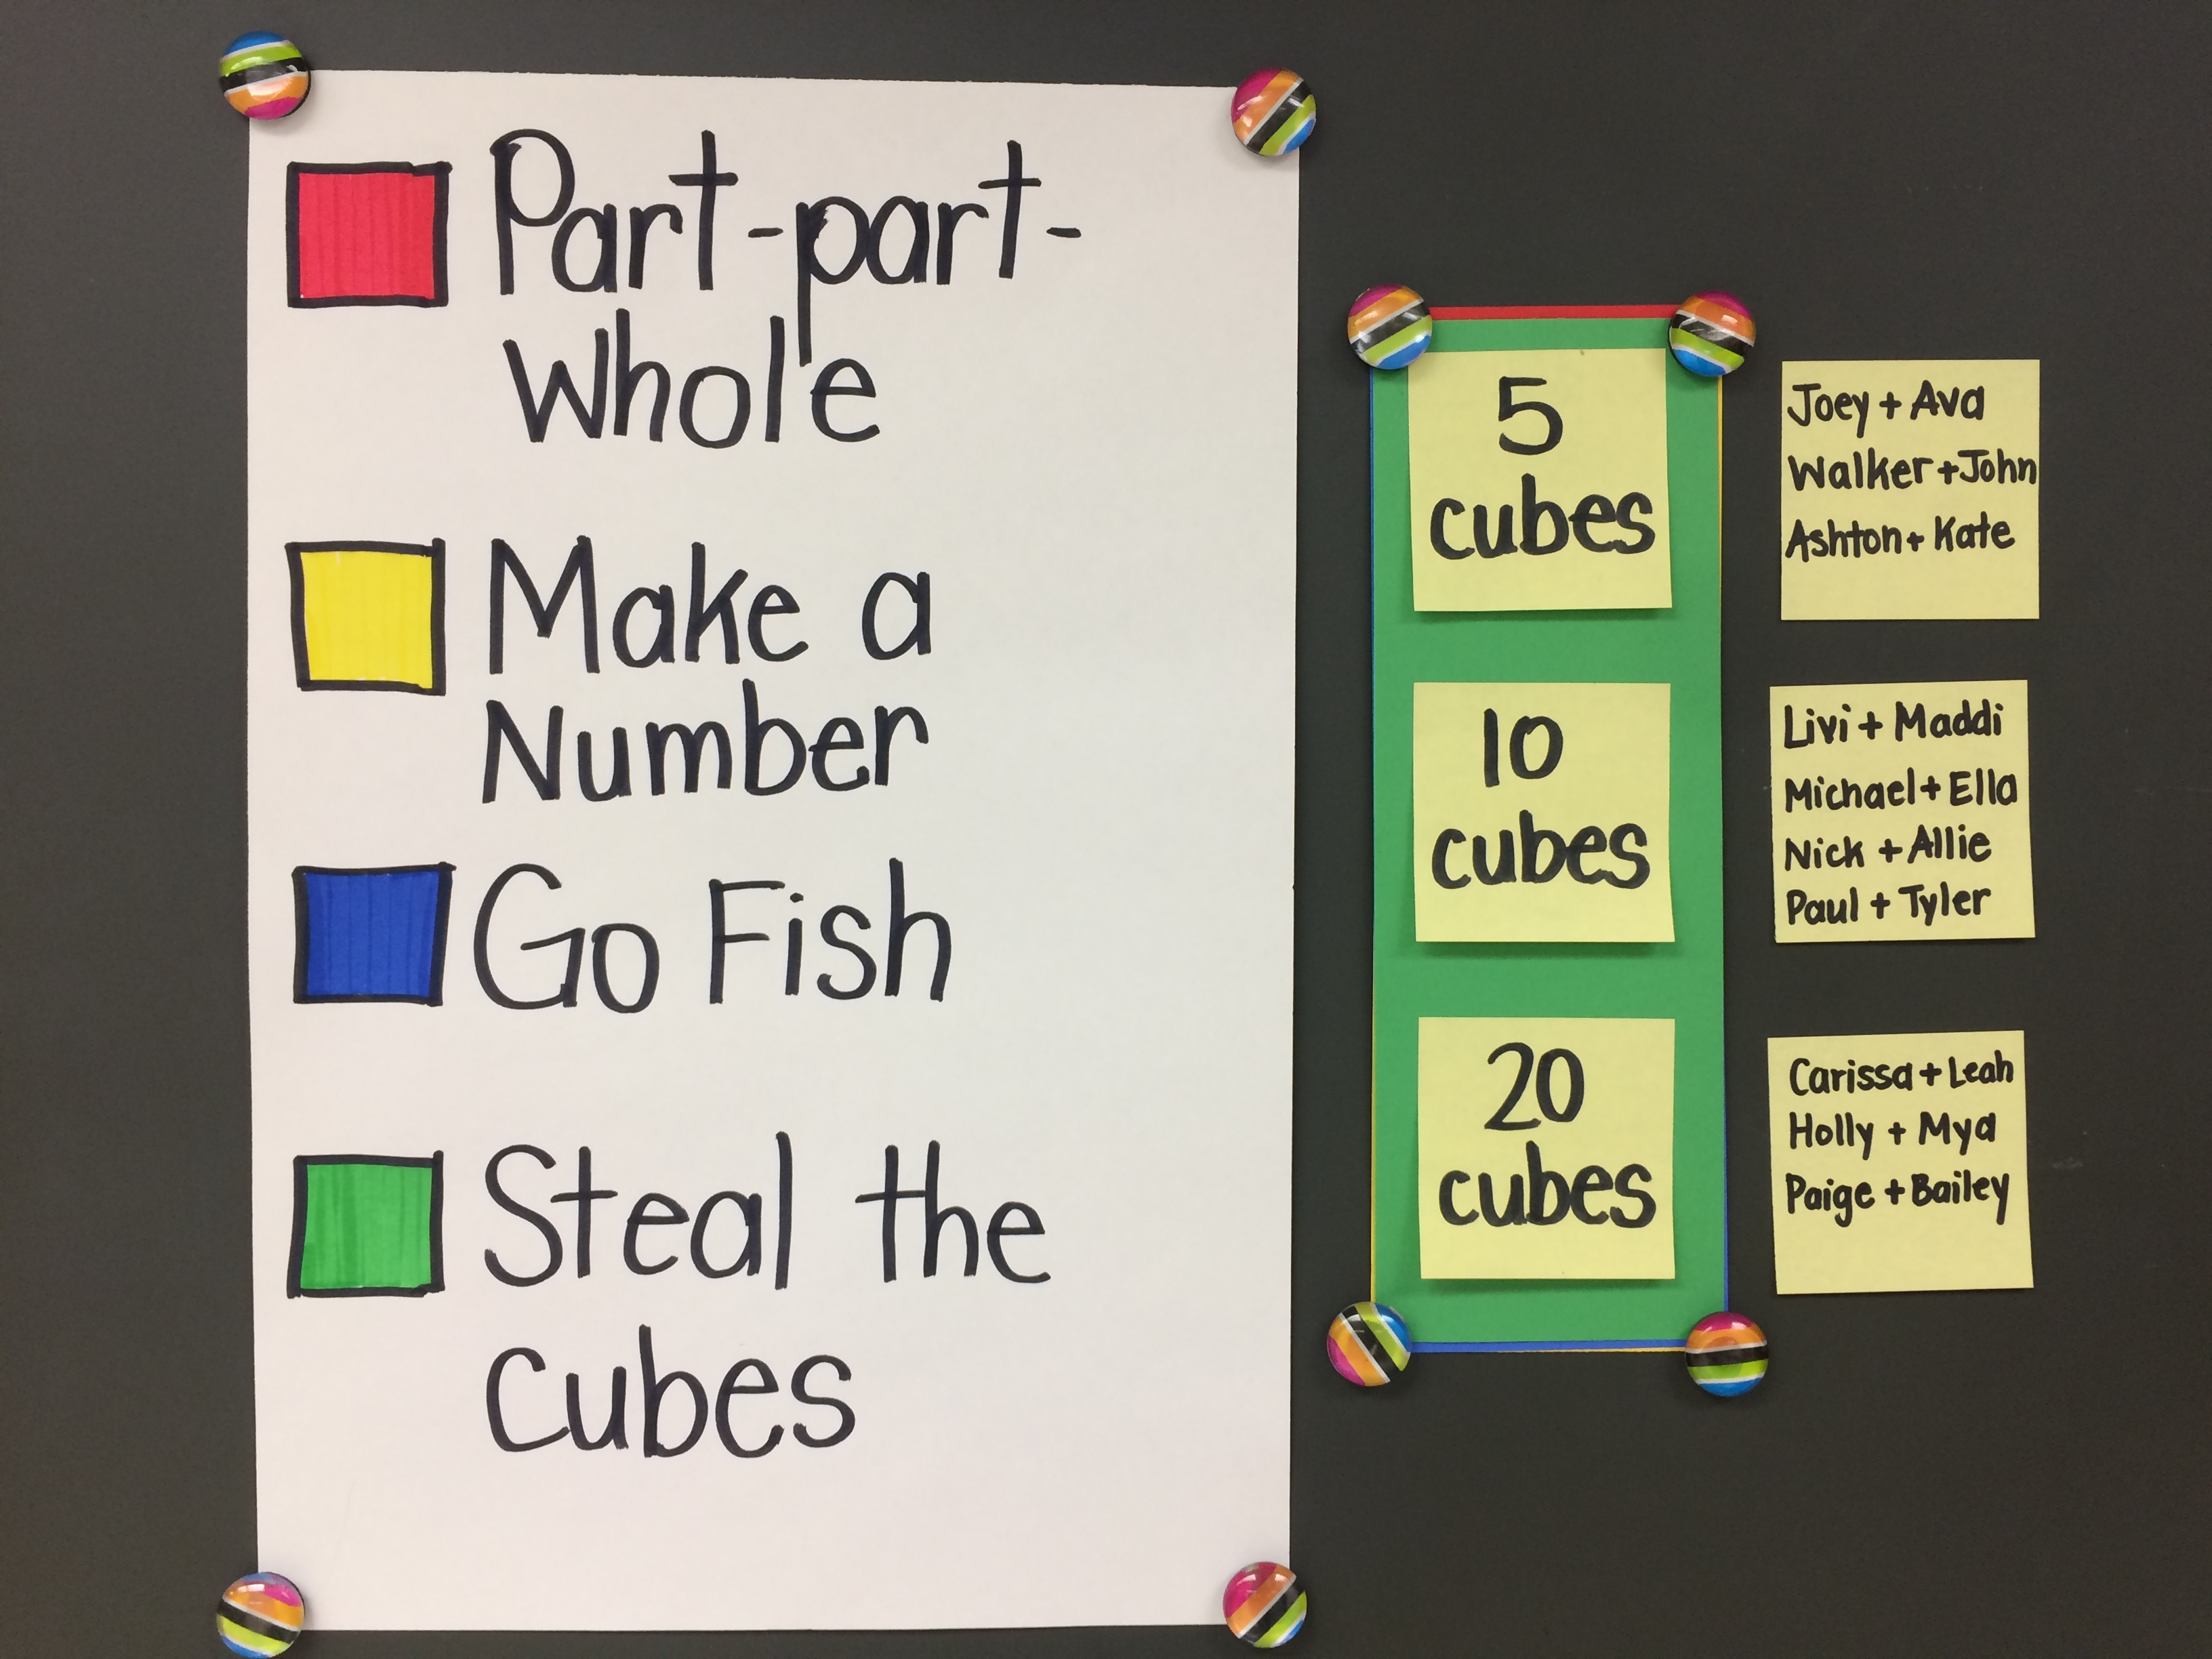 Part-part-
Whole
Make a
Number
Go Fish
Steal the
Cubes
5
cubes
10
cubes
20
cubes
Joey + Ava
Walker + John
Ashton + Kate
Livi + Maddi
Michael + Ella
Nick + Allie
Paul + Tyler
Carissa + Leah
Holly + Mya
Paige + Bailey